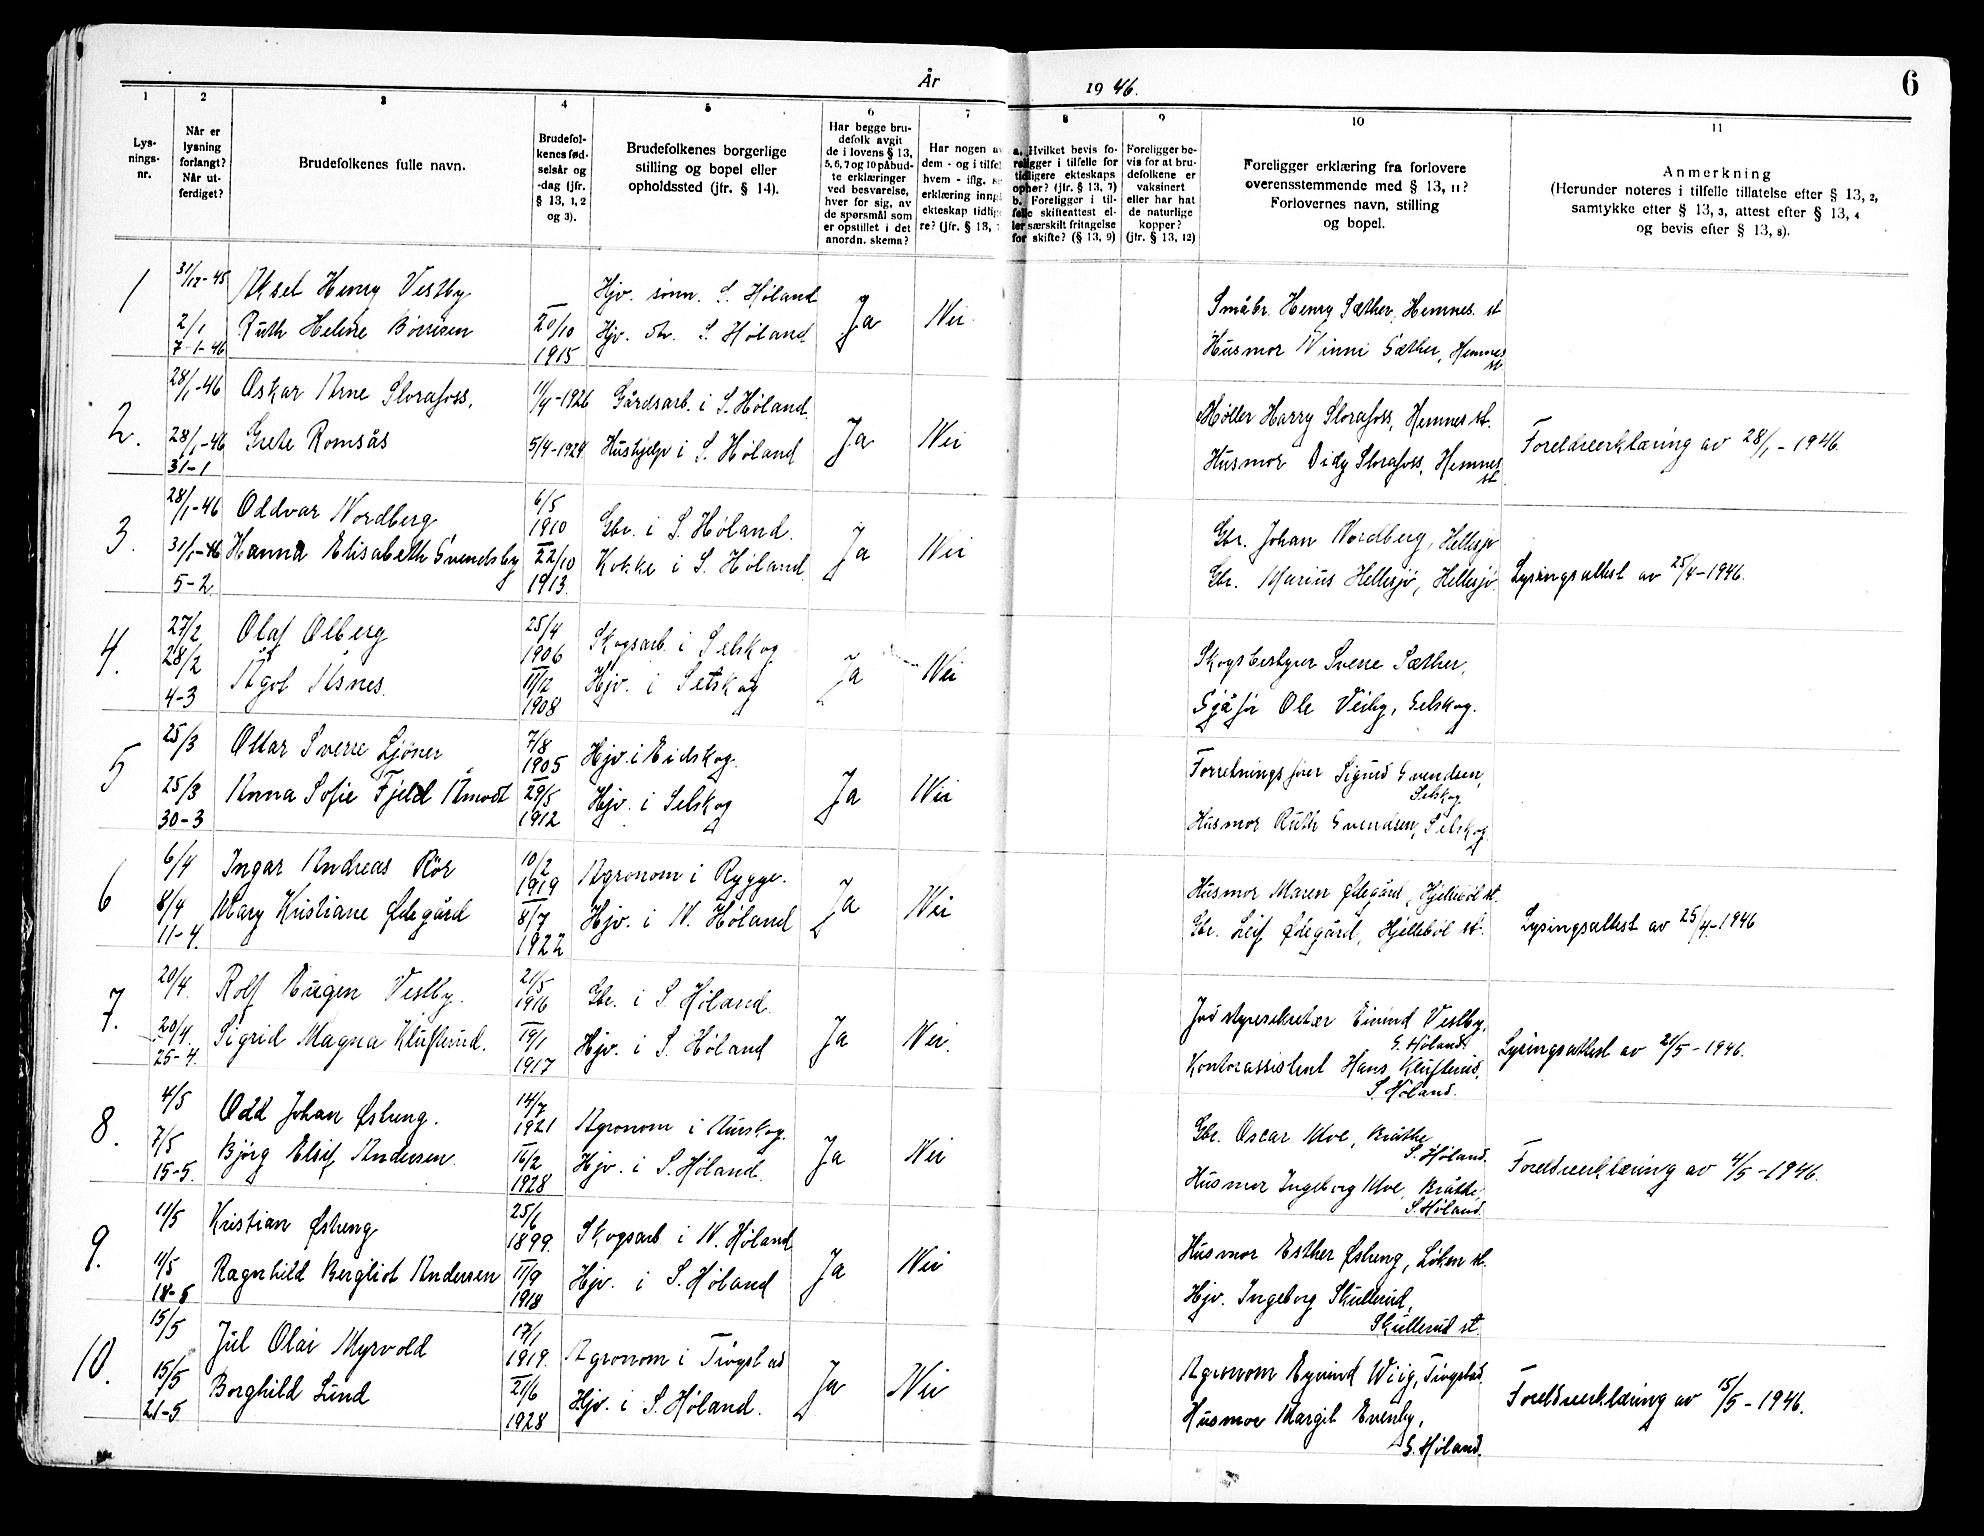 År 1946.
6
1 2 3 4 5 6 7 8 9 10 11
Lys-
nings-
nr.
Når er
lysning
forlangt?
Når ut-
ferdiget?
Brudefolkenes fulle navn.
Brudefol-
kenes fød-
selsår og
-dag (jfr.
§ 13, 1, 2
og 3).
Brudefolkenes borgerlige
stilling og bopel eller
opholdssted (jfr. § 14).
Har begge bru-
defolk avgit
de i lovens § 13,
5, 6, 7 og 10 påbud-
te erklæringer
ved besvarelse,
hver for sig, av
de spørsmål som
er opstillet i det
anordn. skema?
Har nogen av
dem - og i tilfel
hvem - iflg. se
erklæring inng
ekteskap tidlig
re? (jfr. § 13,
a. Hvilket bevis fo-
religger i tilfelle for
tidligere ekteskaps
opher? (jfr. § 13, 7)
b. Foreligger i til-
felle skifteattest el-
ler særskilt fritagelse
for skifte? (§ 13, 9)
Foreligger be-
vis for at bru-
defolkene er
vaksinert
eller har hat
de naturlige
kopper?
(jfr. § 13, 12)
Foreligger erklæring fra forlovere
overensstemmende med § 13, 11?
Forlovernes navn, stilling
og bopel.
Anmerkning
(Herunder noteres i tilfelle tillatelse efter § 13, 2,
samtykke efter § 13, 3, attest efter § 13, 4
og bevis efter § 13, 8).
1 31/12-45 Aksel Henry Vestby Hjv. sønn. S. Høland Ja Nei Småbr. Henry Sæther, Hemnes st
2/1 Ruth Helene Børresen 20/10 Hjv. dtr. S. Høland
7-1-46 1915 Husmor Winni Sæther, Hemnes st.
2. 28/1-46 Oskar Arne Slorafoss. 11/4-1926 Gårdsarb. i S. Høland. Ja Nei Møller Harry Slorafoss, Hemnes st.
28/1-46 Grete Romsås 5/4-1924 Hushjelp i S. Høland Husmor Didy Slorafoss, Hemnes st. Foreldreerklæring av 28/1-1946.
31-1
3. 28/1-46 Oddvar Nordberg 6/5 1910 Gbr. i S. Høland. Ja Nei Gbr. Johan Nordberg, Hellesjø
31/1-46 Hanna Elisabeth Svendsby 22/10 1913. Kokke i S. Høland Gbr. Marius Hellesjø, Hellesjø. Lysingsattest av 25/4-1946.
5-2
4. 27/2 Olaf Olberg 25/4 1906 Skogsarb. i Setskog Ja Nei Skogsbestyrer Sverre Sæther,
28/2 Ågot Åsnes. 11/2 1908 Hjv. i Setskog
4-3 Sjåfør Ole Veiby, Setskog.
5 25/3 Ottar Sverre Sjøner 7/8 1905 Hjv. i Eidskog. Ja Nei Forretningsfører Sigurd Svendsen, Setskog
25/3 Anna Sofie Fjeld Åmodt 29/5 1912 Hjv. i Setskog
30-3 Husmor Ruth Svendsen, Setskog.
6 6/4 Ingar Andreas Rör 10/2 1919 Agronom i Rygge. Ja Nei Husmor Maren Ødegård, Hjellebøl st.
8/4 Mary Kristiane Ødegård 8/7 1922 Hjv. i N. Høland Gbr. Leif Ødegård, Hjellebøl st. Lysingsattest av 25/4-1946
11-4.
7. 20/4. Rolf Eugen Vestby. 21/5 1916 Gbr. i S. Høland. Ja Nei. Jordstyresekretær Eivind Vestby, S. Høland.
20/4. Sigrid Magna Klufterud. 19/1 1917 Hjv. i S. Høland Kontorassistent Hans Klufterud, S. Høland. Lysingsattest av 21/5-1946.
25-4.
8. 4/5 Odd Johan Østeng. 14/7 1921 Agronom i Aurskog. Ja Nei Gbr. Oscar Moe, Bråthe, S. Høland.
7/5 Bjørg Elsif Andersen. 16/2 1928 Hjv. i S. Høland. Husmor Ingeborg Moe, Bråthe, S. Høland. Foreldreerklæring av 4/5-1946.
15-5.
9. 11/5 Kristian Østeng 25/6 1899. Skogsarb. i N. Høland Ja Nei Husmor Esther Østeng, Løken st.
11/5 Ragnhild Bergliot Andersen 11/9 1918 Hjv. i S. Høland Hjv. Ingeborg Skullerud, Skullerud st.
18-5
10. 15/5 Jul Olai Myrvold 17/1 1919. Agronom i Trøgstad Ja Nei Agronom Eyvind Wiig, Trøgstad.
15/5 Borghild Lund 21/6 1928 Hjv. i S. Høland. Husmor Margit Evenby, S. Høland. Foreldreerklæring av 15/5-1946.
21-5